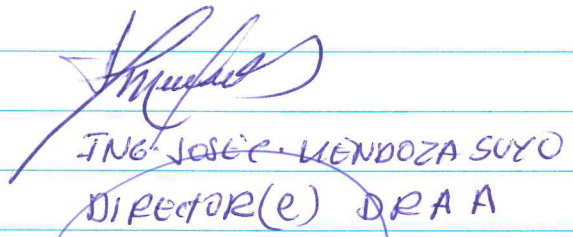 ING. JOSÉ C. MENDOZA SUYO
DIRECTOR(e) DRAA